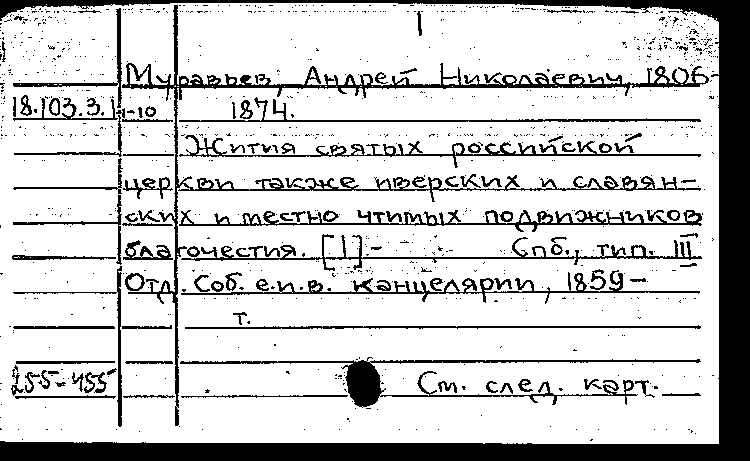 1
Муравьев, Андрей Николаевич, 1806-
18.103.3.1 1-10 1874.
Жития святых российской
церкви также иверских и славян-
ских и местно чтимых подвижников
благочестия. [1].- Спб., тип. III
Отд. Соб. е.и.в. канцелярии, 1859-
т.
255-455 См. след. карт.